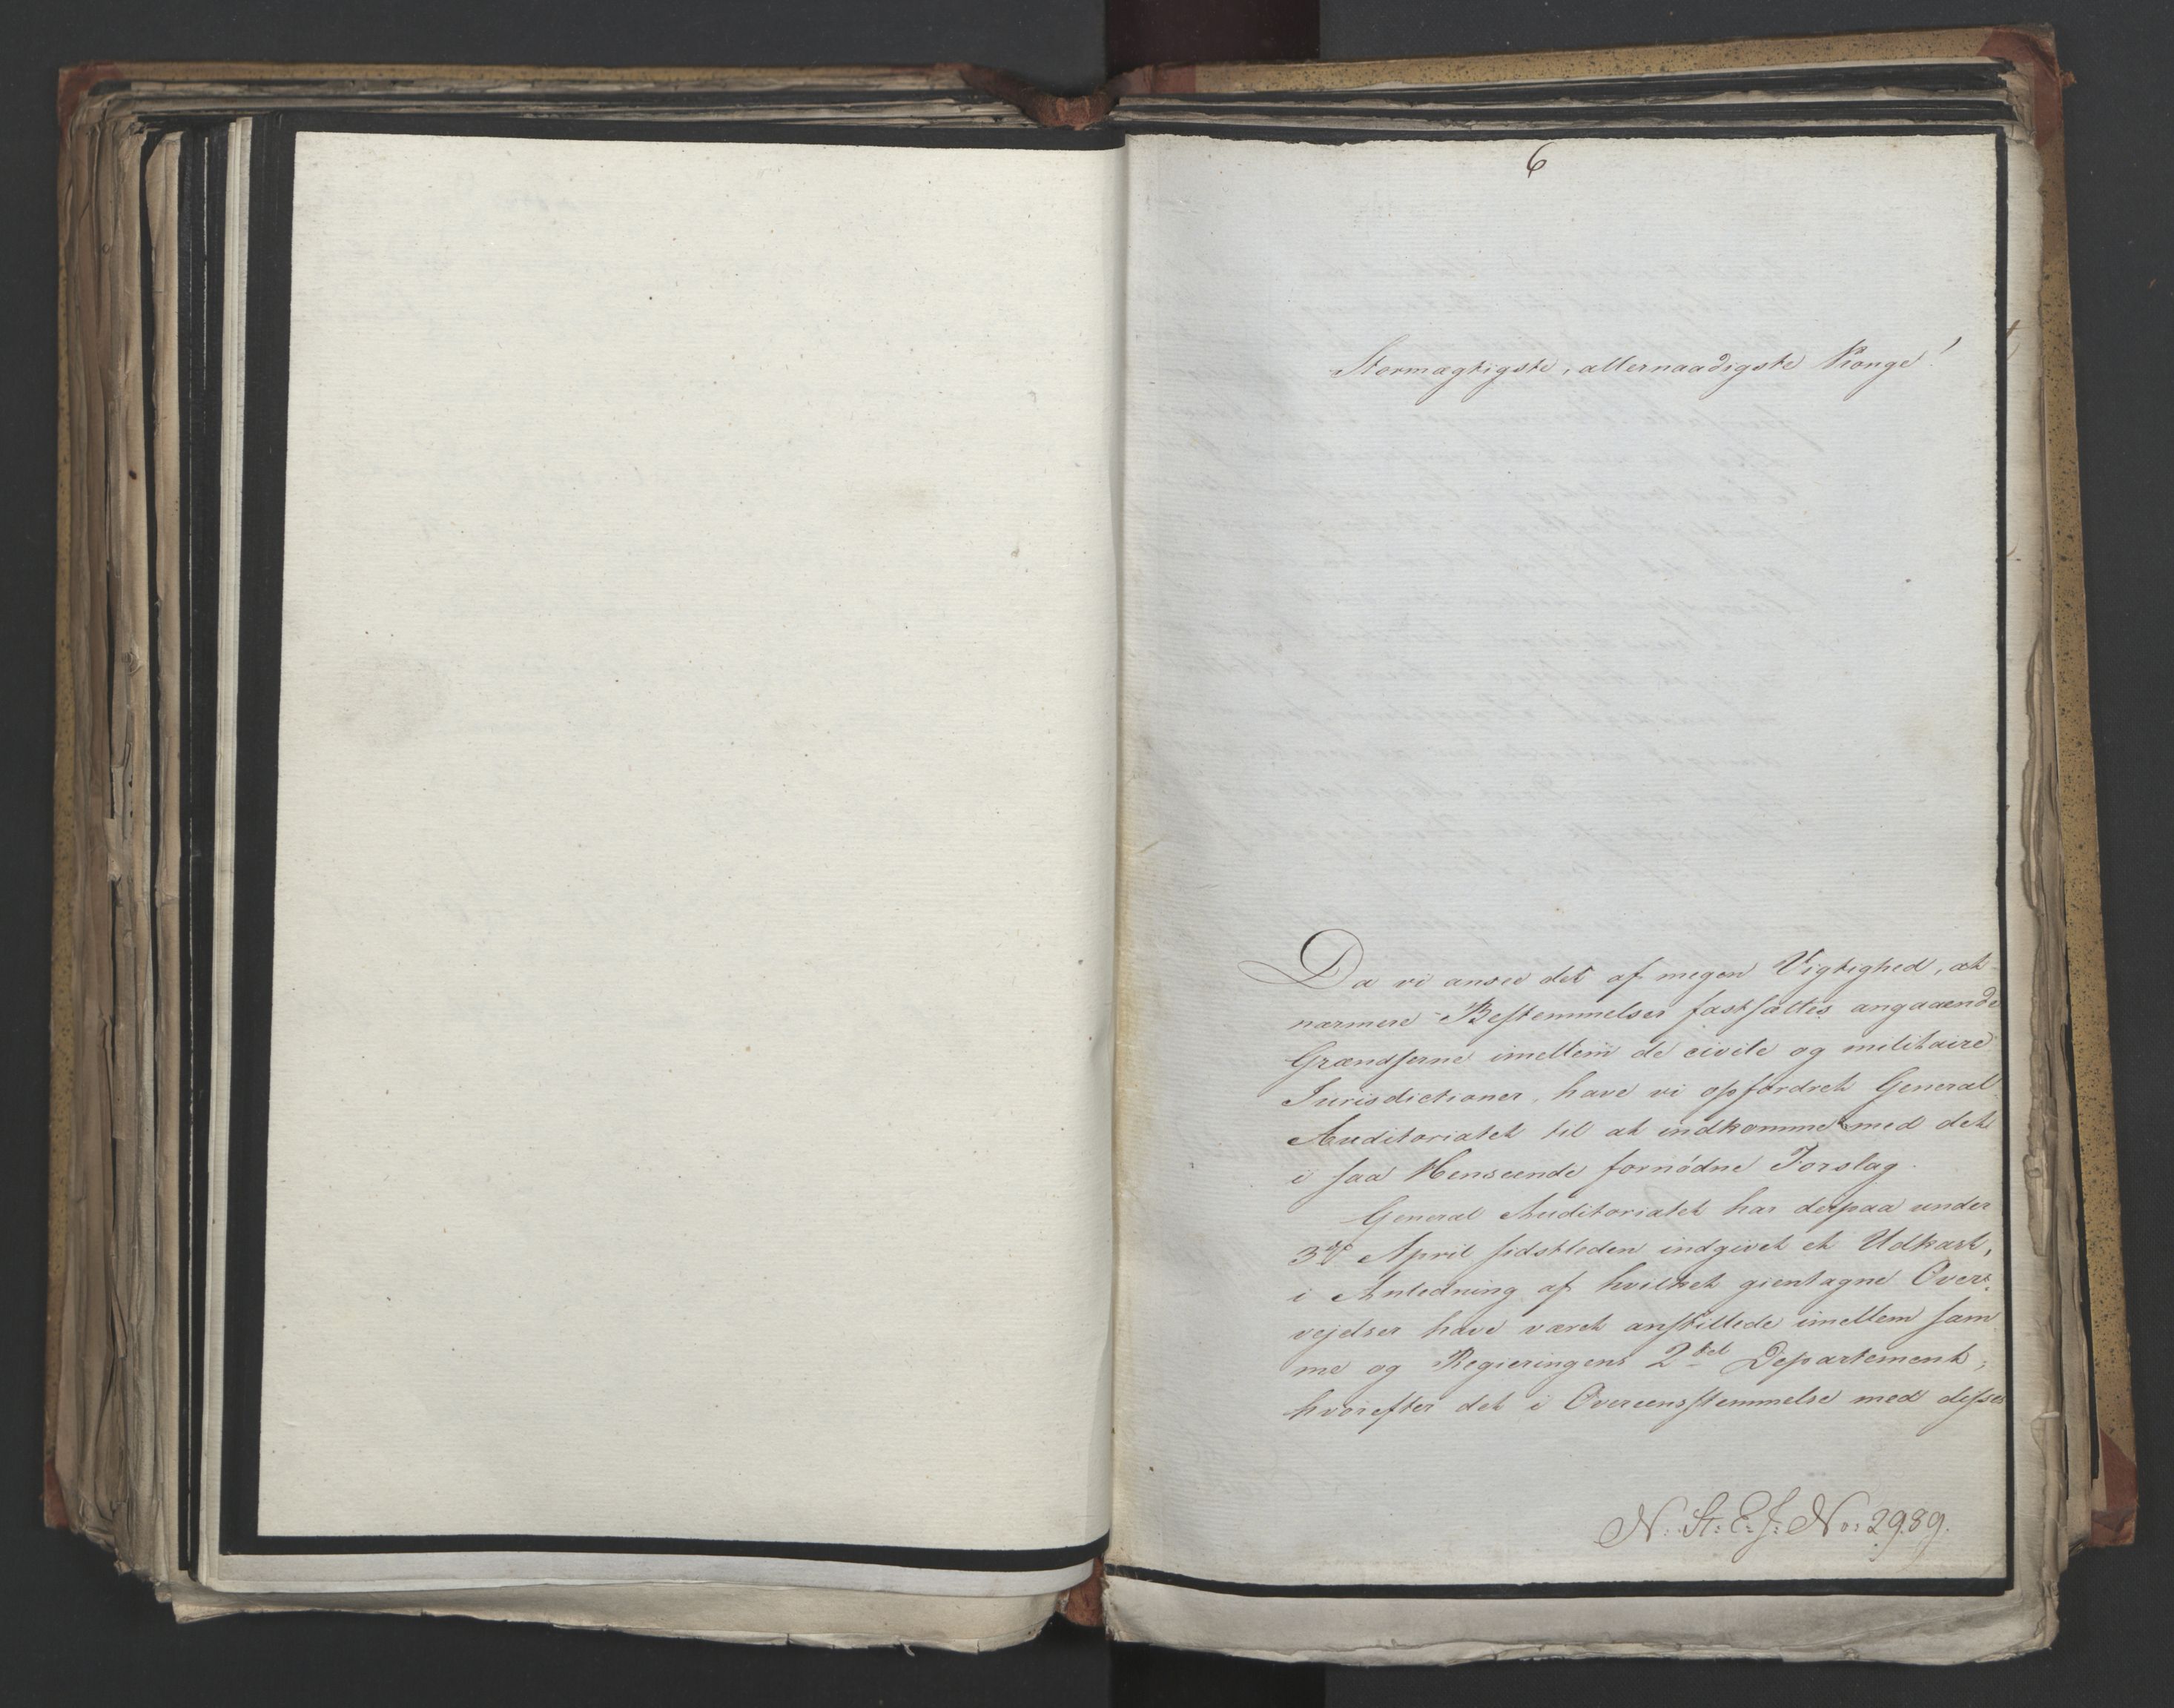 6
Stormægtigste, allernaadigste Konge!
Da vi ansee det af megen Vigtighed, at
nærmere Bestemmelser fastsættes angaaende
Grændserne imellem de civile og militaire
Jurisdictioner, have vi opfordret General
Auditoriatet til at indkomme med det
i saa Henseende fornødne Forslag.
General Auditoriatet har derpaa under
3die April sidstleden indgivet et Udkast,
i Anledning af hvilket gientagne Over-
vejelser have været anstillede imellem sam
me og Regieringens 2det Departement,
hvorefter det i Overeensstemmelse med disses
N: St: E: J: No: 2989.